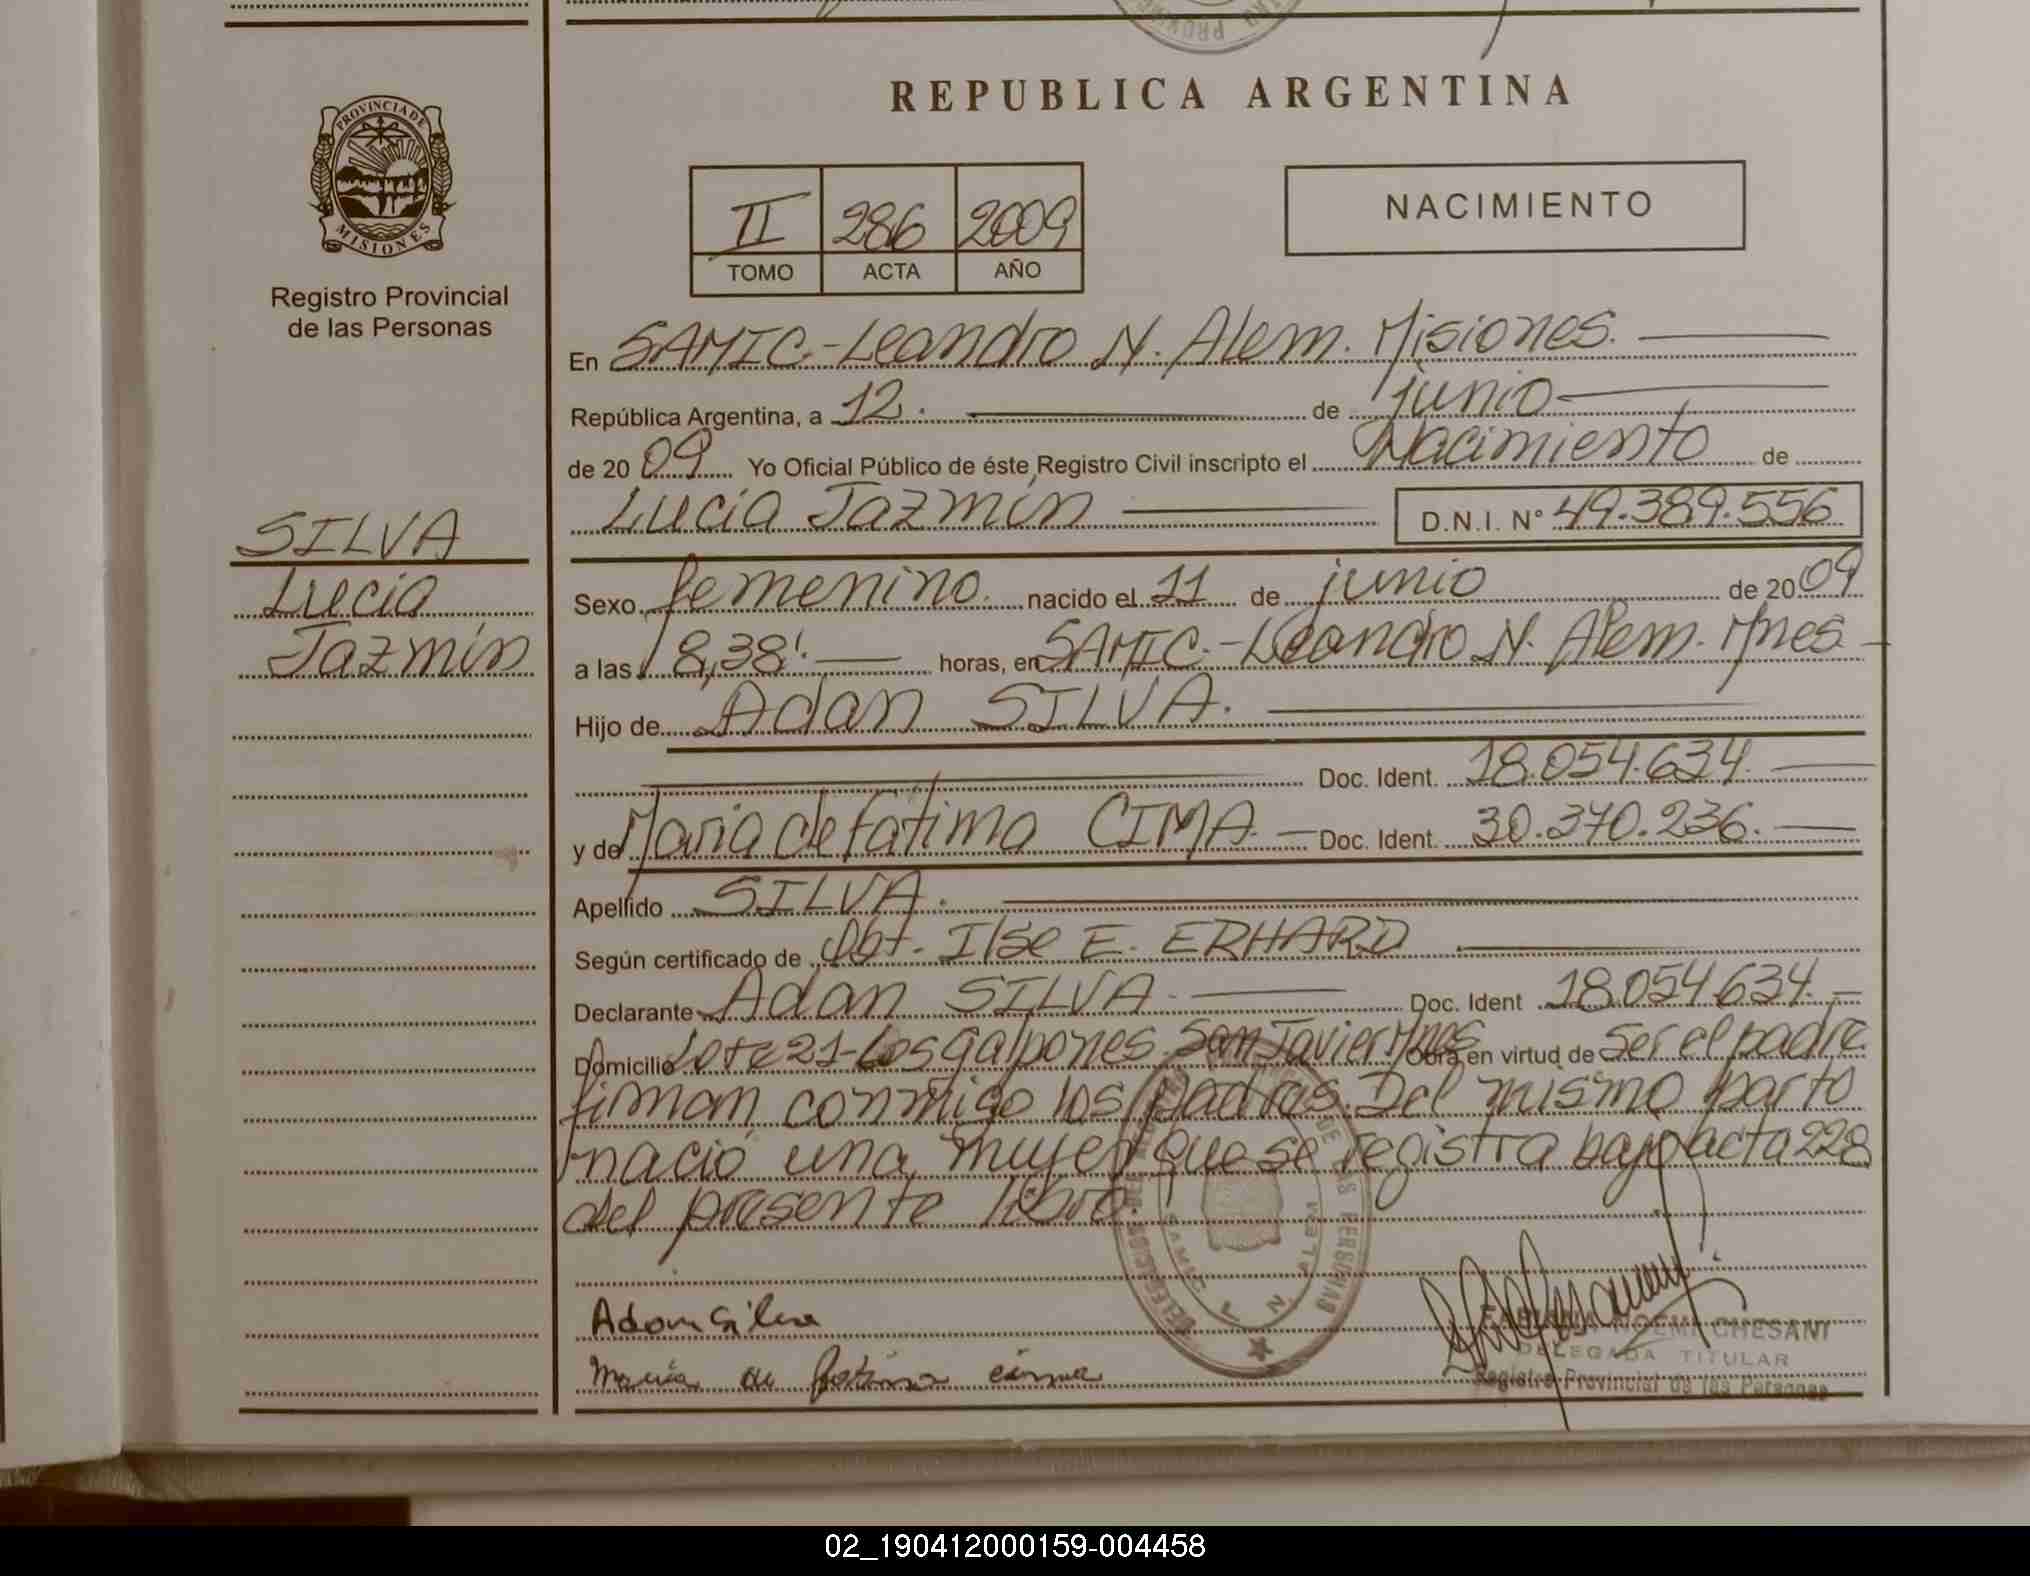 REPUBLICA ARGENTINA
PROVINCIA DE
MISIONES
Registro Provincial
de las Personas
II 286 2009
TOMO ACTA AÑO
NACIMIENTO
En SAMIC.-Leandro N. Alem. Misiones.
República Argentina, a 12. de junio
de 2009 Yo Oficial Público de éste Registro Civil inscripto el Nacimiento de
Lucia Jazmín D.N.I. Nº 49.389.556
SILVA
Lucia
Jazmín
Sexo femenino. nacido el 11 de junio de 2009
a las 8,38'. horas, en SAMIC.-Leandro N. Alem. Mnes
Hijo de Adan SILVA.
Doc. Ident. 18.054.634.
y de Maria de Fatima CIMA. Doc. Ident. 30.370.236.
Apellido SILVA.
Según certificado de Obt. Ilse E. ERHARD
Declarante Adan SILVA. Doc. Ident 18.054.634.
Domicilio Lote 21-Los Galpones San Javier Mnes Obra en virtud de ser el padre.
firman conmigo los padres. Del mismo parto
nació una mujer que se registra bajo acta 228
del presente libro.
DE LAS PERSONAS
SAMIC L. N. ALEM
Adan Silva
Maria de Fatima cima
NOEMI CHESANI
DELEGADA TITULAR
Registro Provincial de las Personas
02_190412000159-004458